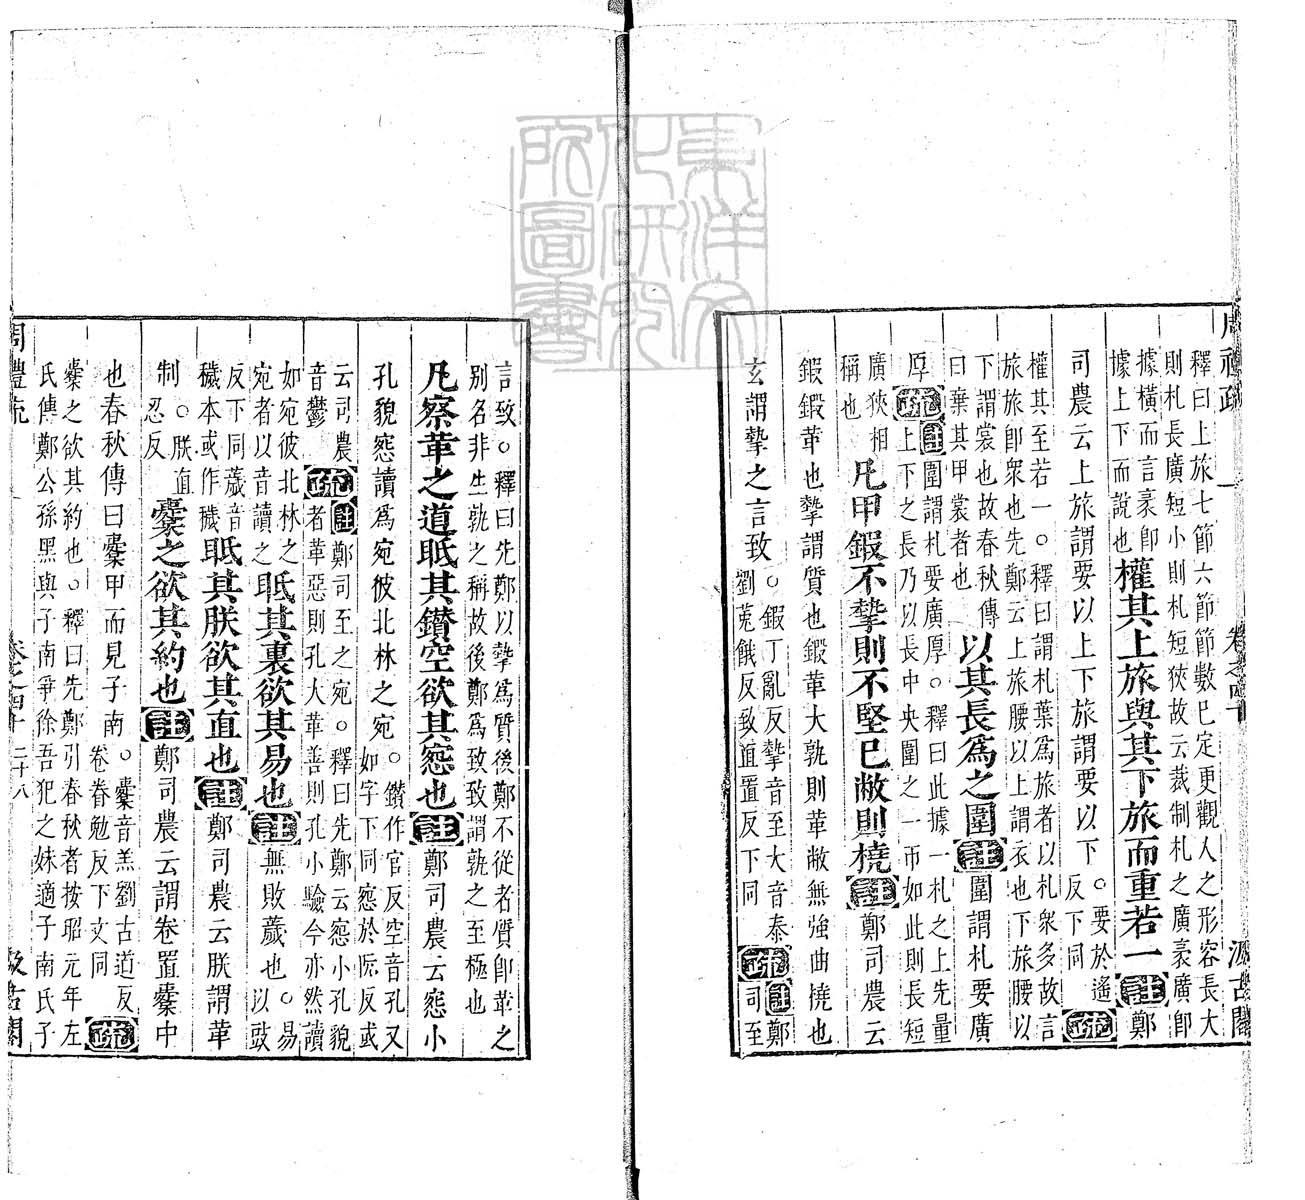 周禮疏 卷之四十 汲古閣
釋曰上旅七節六節節數已定更觀人之形容長大
則札長廣短小則札短狹故云裁制札之廣袤廣卽
據橫而言袤卽
據上下而說也
權其上旅與其下旅而重若一註鄭
司農云上旅謂要以上下旅謂要以下。要於遙
反下同疏
權其至若一。釋曰謂札葉爲旅者以札衆多故言
旅旅卽衆也先鄭云上旅腰以上謂衣也下旅腰以
下謂裳也故春秋傳
曰棄其甲裳者也
以其長爲之圍註圍謂札要廣
厚疏註圍謂札要廣厚。釋曰此據一札之上先量
上下之長乃以長中央圍之一帀如此則長短
廣狹相
稱也
凡甲鍜不摯則不堅已敝則橈註鄭司農云
鍜鍜革也摯謂質也鍜革大孰則革敝無強曲橈也
玄謂摯之言致。鍜丁亂反摯音至大音泰
劉菟餓反致直置反下同疏註鄭
司至
言致。釋曰先鄭以摯爲質後鄭不從者質卽革之
別名非生孰之稱故後鄭爲致致謂孰之至極也
凡察革之道眡其鑽空欲其窓也註鄭司農云窓小
孔貌窓讀爲宛彼北林之宛。鑽作官反空音孔又
如字下同窓於阮反或
云司農
音鬱疏註鄭司至之宛。釋曰先鄭云窓小孔貌
者革惡則孔大革善則孔小驗今亦然讀
如宛彼北林之
宛者以音讀之
眡其裏欲其易也註無敗薉也。易
以豉
反下同薉音
穢本或作穢
眡其朕欲其直也註鄭司農云朕謂革
制。朕直
忍反
櫜之欲其約也註鄭司農云謂卷置櫜中
也春秋傳曰櫜甲而見子南。櫜音羔劉古道反
卷眷勉反下文同疏
櫜之欲其約也。釋曰先鄭引春秋者按昭元年左
氏傳鄭公孫黑與子南爭徐吾犯之妹適子南氏子
周禮疏 卷之四十 二十八 汲古閣
東洋文化研究所圖書